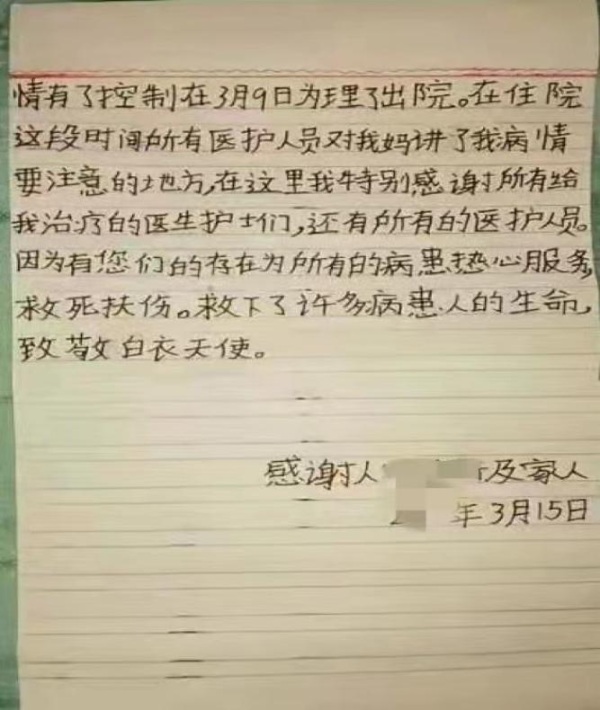 情有了控制在3月9日为理了出院。在住院
这段时间所有医护人员对我妈讲了我病情
要注意的地方,在这里我特别感谢所有给
我治疗的医生护士们,还有所有的医护人员。
因为有您们的存在为所有的病患热心服务,
救死扶伤。救下了许多病患人的生命,
致敬白衣天使。
感谢人 及家人
年3月15日